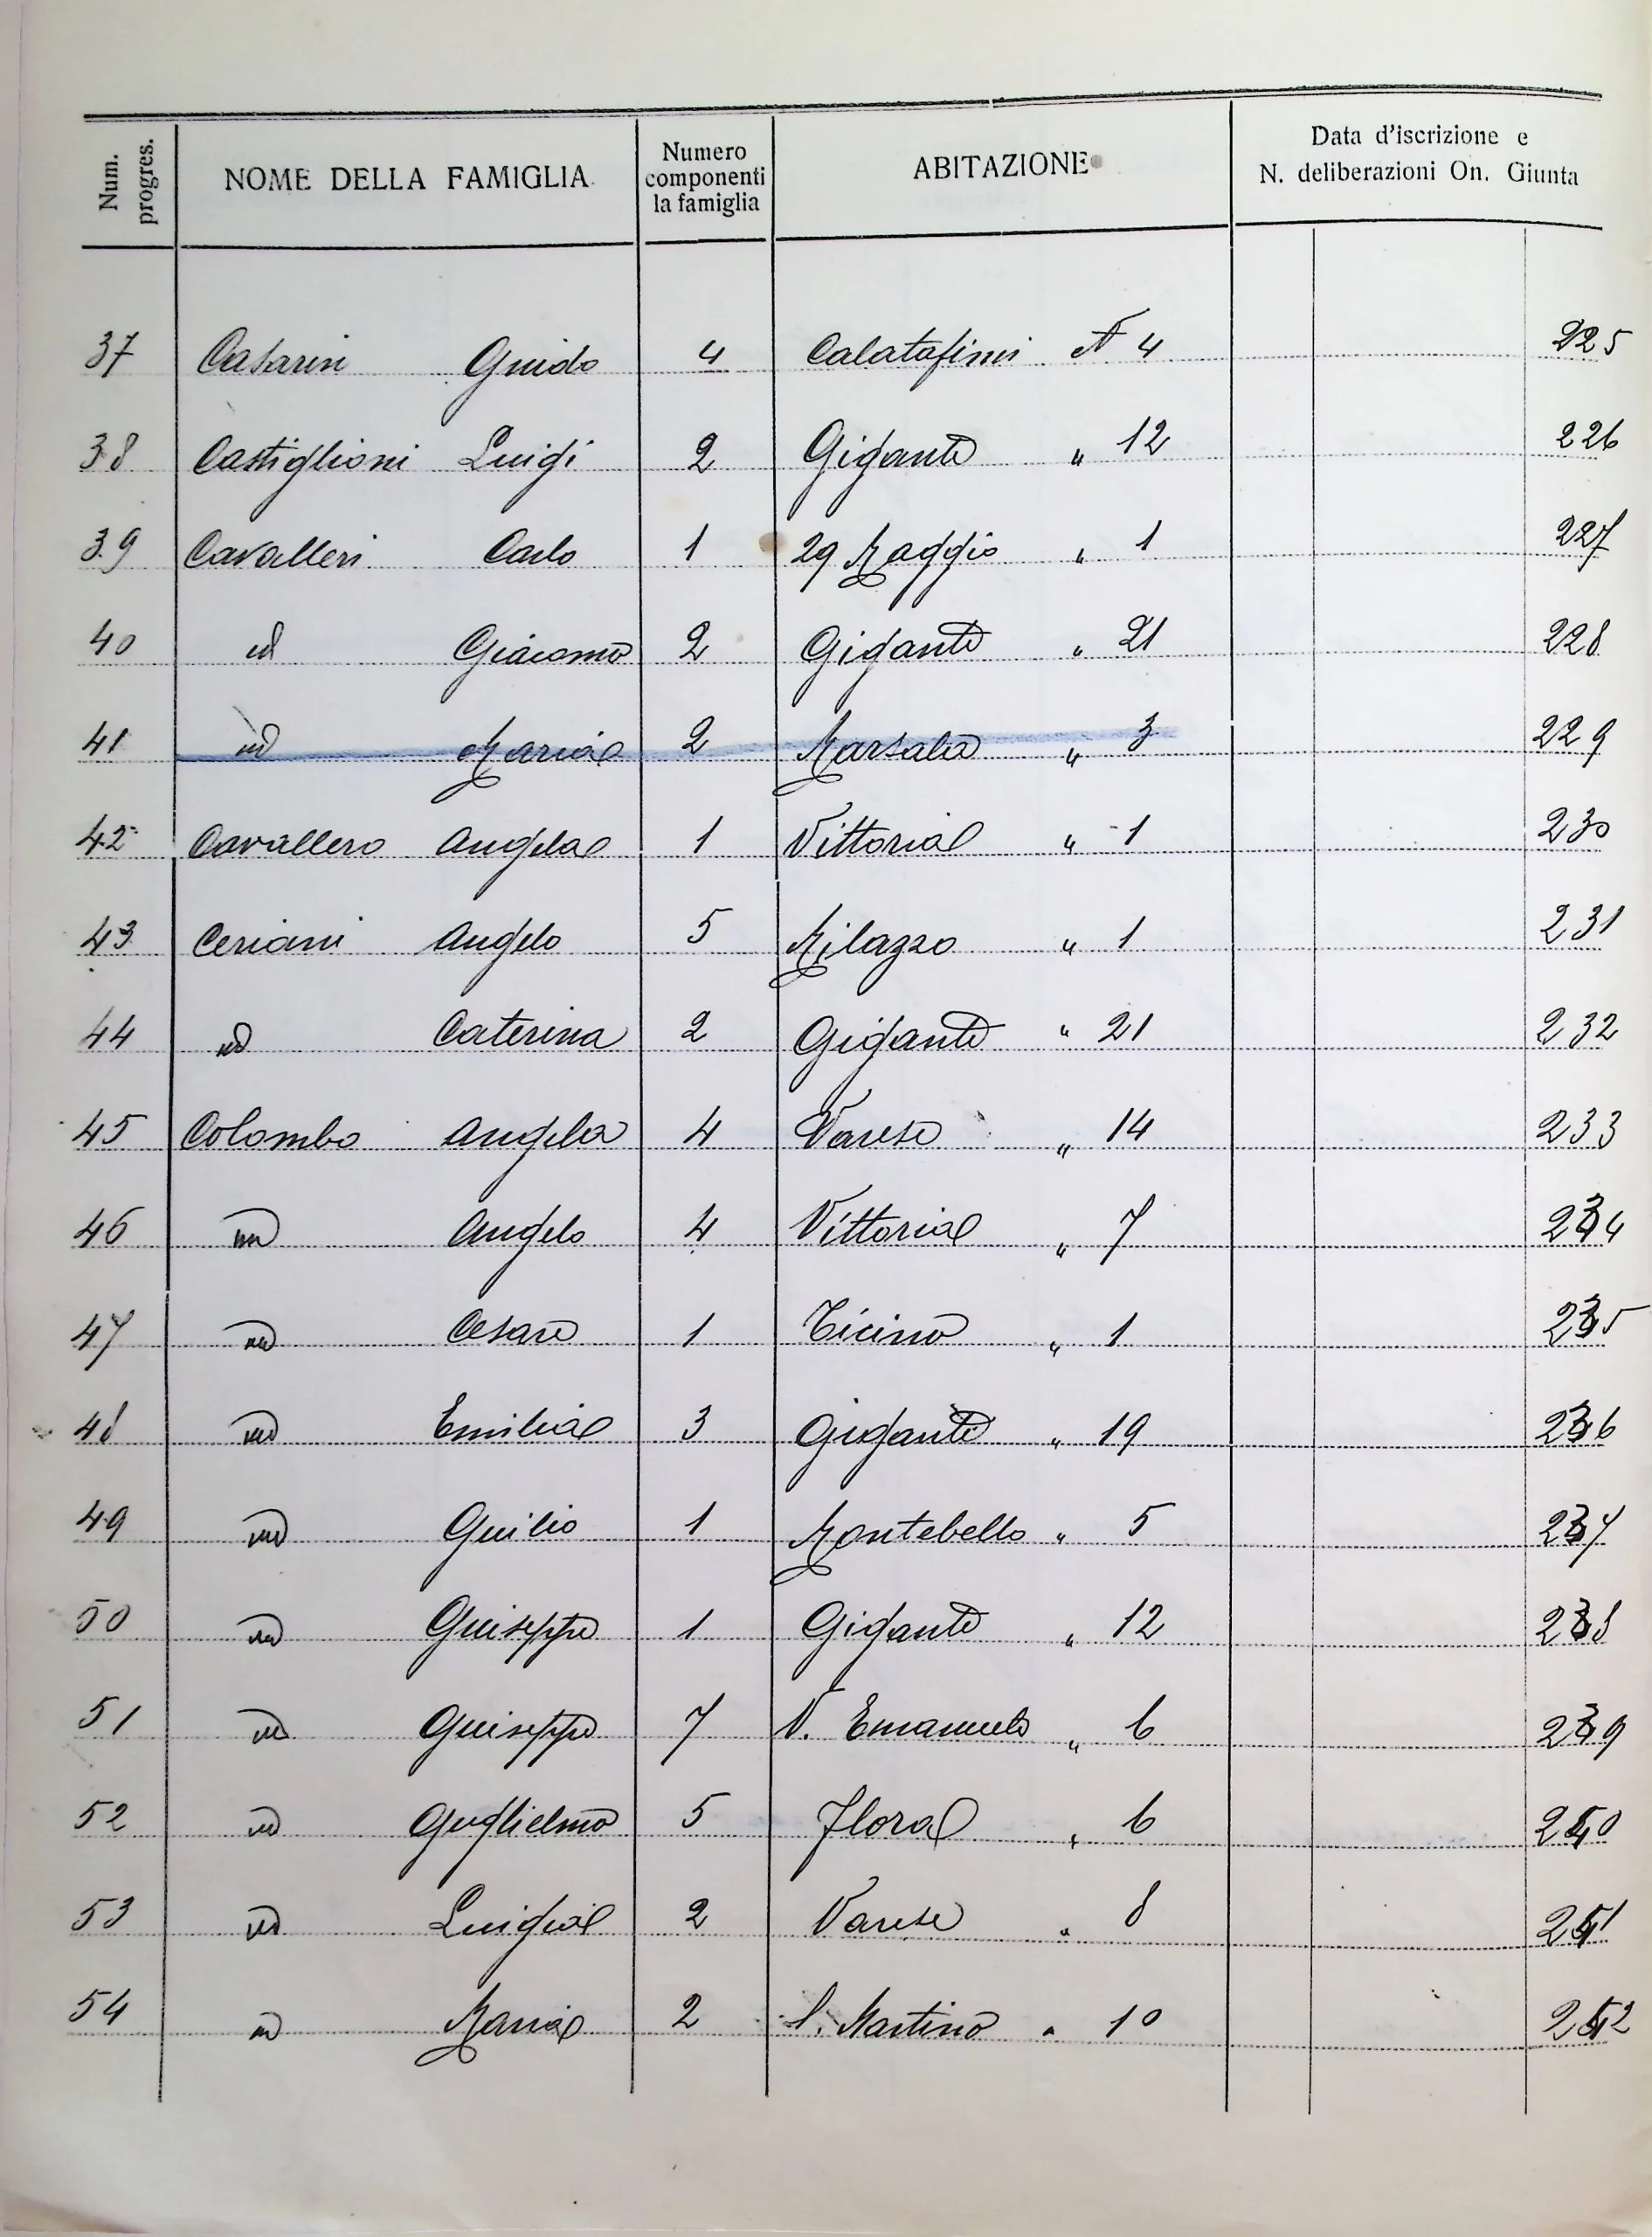 Num. progres. NOME DELLA FAMIGLIA Numero componenti la famiglia ABITAZIONE Data d'iscrizione e N. deliberazioni On. Giunta
37 Casarin Guido 4 Calatafimi N 4 225
38 Castiglioni Luigi 2 Gigante " 12 226
39 Cavalleri Carlo 1 29 Maggio " 1 227
40 id Giacomo 2 Gigante " 21 228
41 id Maria 2 Marsala " 3 229
42 Cavallero Angela 1 Vittoria " 1 230
43 Ceriani Angelo 5 Milazzo " 1 231
44 id Caterina 2 Gigante " 21 232
45 Colombo Angela 4 Varese " 14 233
46 id Angelo 4 Vittoria " 7 234
47 id Cesare 1 Ticino " 1 235
48 id Emilia 3 Gigante " 19 236
49 id Guilio 1 Montebello " 5 237
50 id Guiseppe 1 Gigante " 12 238
51 id Guiseppe 7 V. Emanuele " 6 239
52 id Guglielmo 5 Flora " 6 240
53 id Luigia 2 Varese " 8 241
54 id Maria 2 S. Martino " 10 242